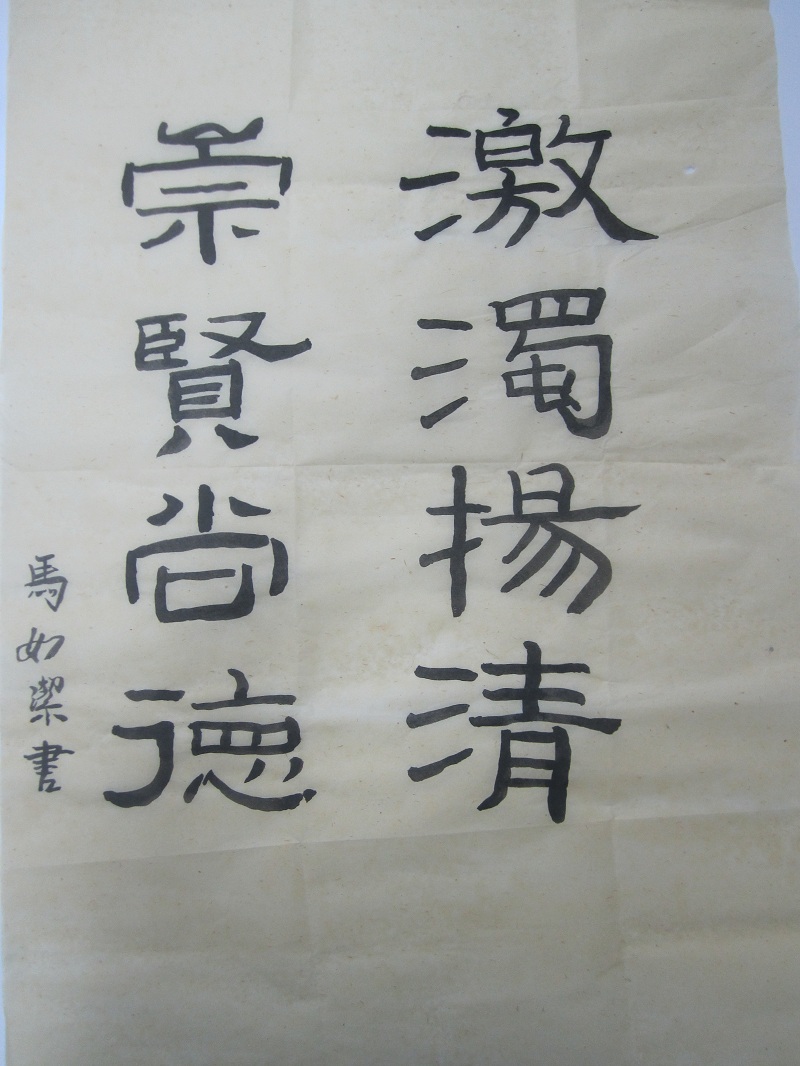 激濁揚清
崇賢尚德
馬如潔書